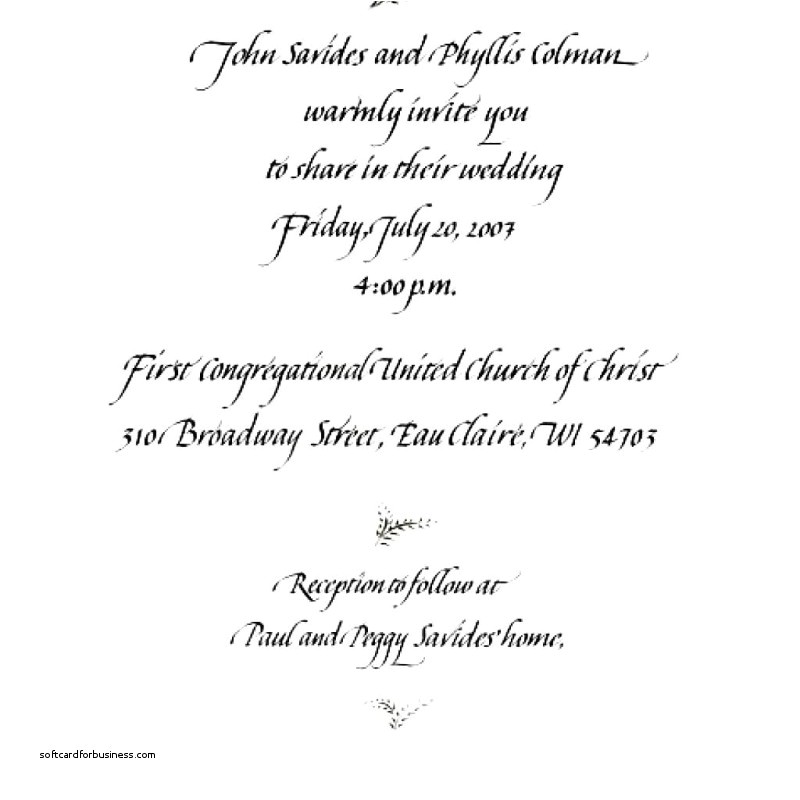 John Savides and Phyllis Colman
warmly invite you
to share in their wedding
Friday, July 20, 2007
4:00 p.m.
First Congregational United Church of Christ
310 Broadway Street, Eau Claire, WI 54703
Reception to follow at
Paul and Peggy Savides' home.
softcardforbusiness.com